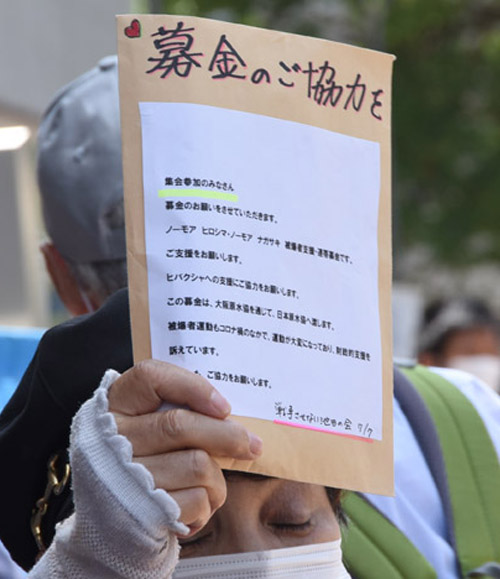 募金のご協力を
集会参加のみなさん
募金のお願いをさせていただきます。
ノーモア ヒロシマ・ノーモア ナガサキ 被爆者支援・連帯募金です。
ご支援をお願いします。
ヒバクシャへの支援にご協力をお願いします。
この募金は、大阪原水協を通じて、日本原水協へ渡します。
被爆者運動もコロナ禍のなかで、運動が大変になっており、財政的支援を
訴えています。
ご協力をお願いします。
戦争させない!池田の会 7/7